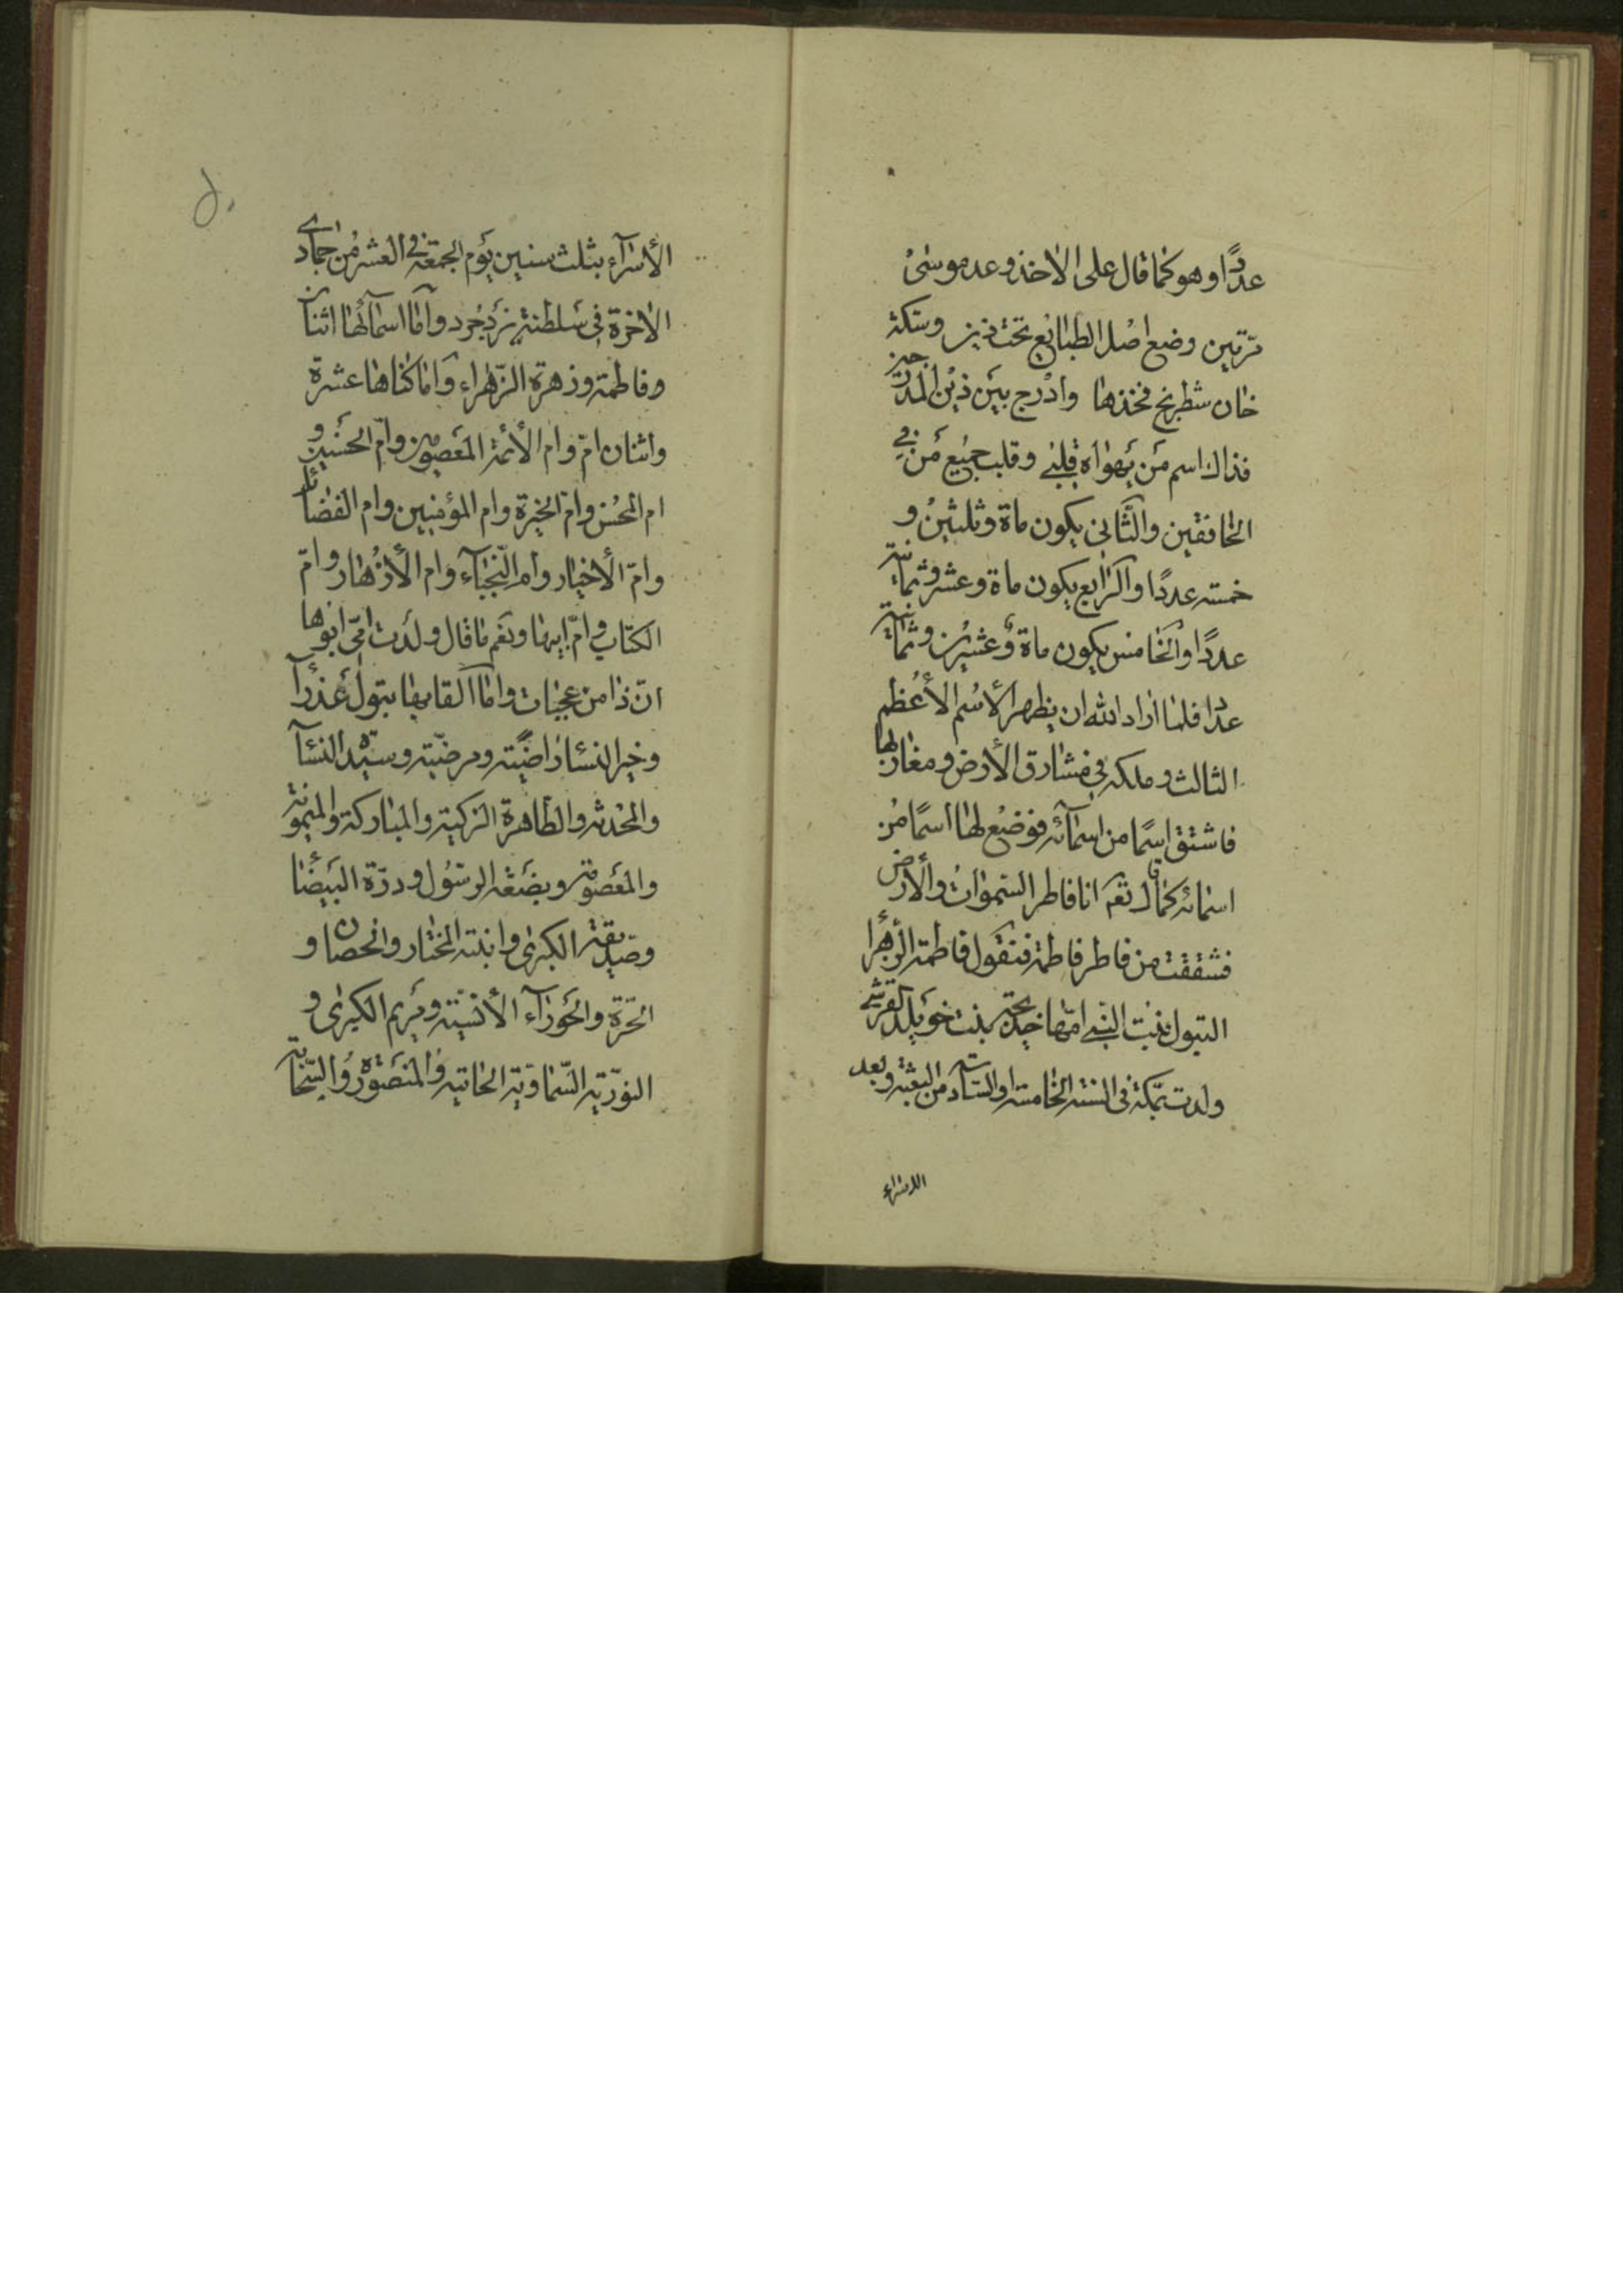 عددًا وهو كما قال على الاخذ وعد موسىٰ
مرتين وضع اصل الطبايع تحت ذين وسكة
خان شطرنج فخذها وادرج بين ذين المدرجين
فذاك اسم من يهواه قلبي وقلب جميع من في
الخافقين والثاني يكون ماة وثلثين و
خمسة عددًا والرابع يكون ماة وعشر وثمانية
عددًا والخامس يكون ماة وعشرين وثمانية
عددا فلما اراد الله ان يظهر الاسم الأعظم
الثالث وملكه في مشارق الأرض ومغاربها
فاشتق اسمًا من اسمآئه فوضع لها اسمًا من
اسمائه كما قال تعم انا فاطر السموات والأرض
فشققت من فاطر فاطمة فنقول فاطمة الزهرا
البتول بنت النبي امها خديجة بنت خويلد القرشي
ولدت بمكة في السنة الخامسة او السادسة من البعثة وبعد
الاسراء
الأسرآء بثلث سنين يوم الجمعة في العشر من جمادى
الاخرة في سلطنة يزدجرد وآما اسمآئها اثنان
وفاطمة وزهرة الزهراء واما كناها عشرة
واثنان امّ وام الأئمة المعصومين وام الحسنين و
ام المحسن وام الخيرة وام المؤمنين وام الفضائل
وامّ الأخيار وام النّجبآء وام الأزهار وامّ
الكتاب وامّ ابيها ونعم ما قال ولدت امّي ابوها
انّ ذا من عجبات واما القابها بتول عذرآ
وخير النسا راضية ومرضيّة وسيّدة النسآ
والمحدثة والطاهرة الزكية والمباركة والميمونة
والمعصومة وبضعة الرسول ودرّة البيضا
وصديقة الكبرى وابنة المختار والحصان و
الحرّة والحورآء الأنسيّة ومريم الكبرى و
النوريّة السّماويّة الحانية والمنصورة والسّخاتة